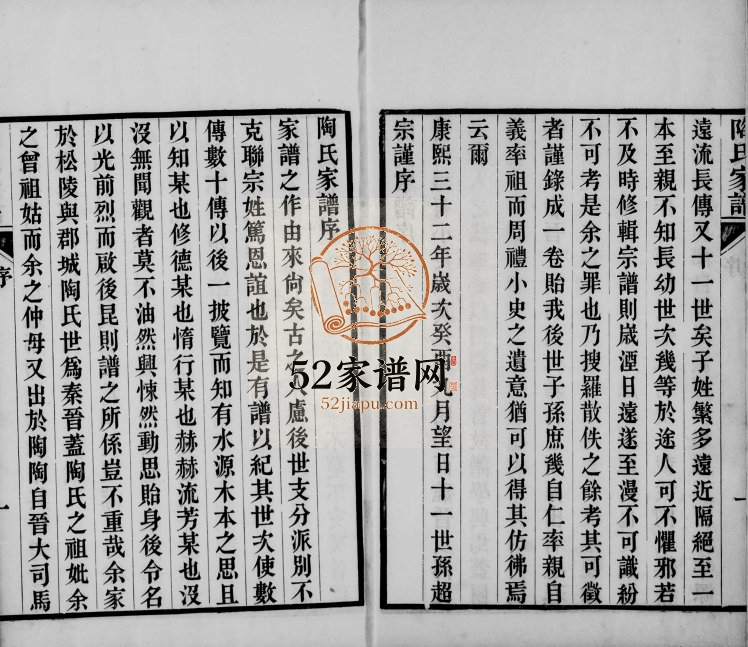 陶氏家譜
序
一
遠流長傳又十一世矣子姓繁多遠近隔絕至一
本至親不知長幼世次幾等於途人可不懼邪若
不及時修輯宗譜則歲湮日遠遂至漫不可識紛
不可考是余之罪也乃搜羅散佚之餘考其可徵
者謹錄成一卷貽我後世子孫庶幾自仁率親自
義率祖而周禮小史之遺意猶可以得其仿彿焉
云爾
康熙三十二年歲次癸酉月望日十一世孫超
宗謹序
陶氏家譜序
家譜之作由來尙矣古之人慮後世支分派別不
克聯宗姓篤恩誼也於是有譜以紀其世次使數
傳數十傳以後一披覽而知有水源木本之思且
以知某也修德某也惰行某也赫赫流芳某也沒
沒無聞觀者莫不油然興悚然動思貽身後令名
以光前烈而啟後昆則譜之所係豈不重哉余家
於松陵與郡城陶氏世爲秦晉蓋陶氏之祖妣余
之曾祖姑而余之仲母又出於陶陶自晉大司馬
序
一
52家谱网
52jiapu.com